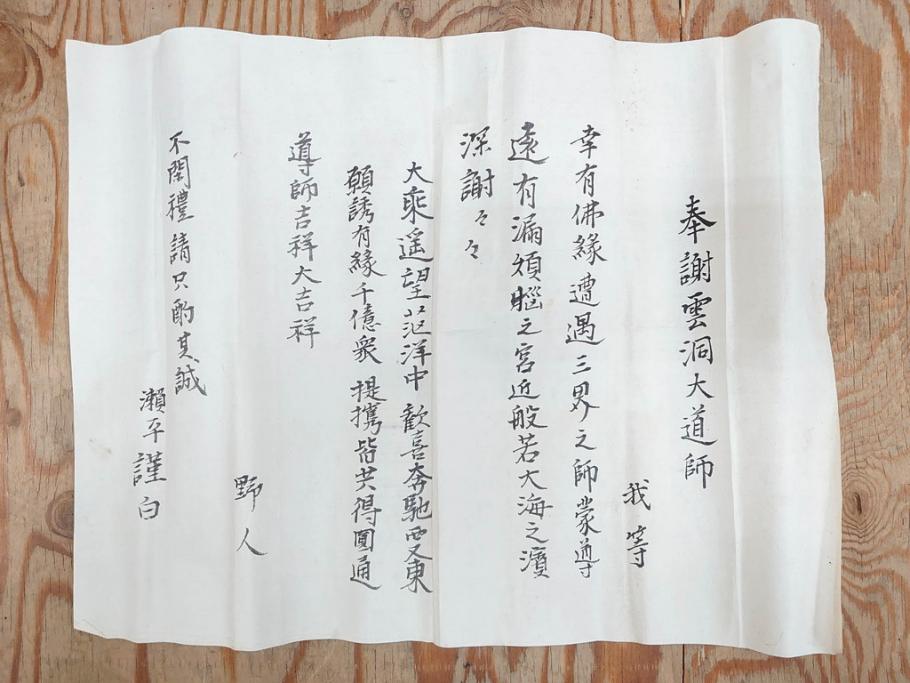 奉謝雲洞大道師
我等
幸有佛緣遭遇三界之師蒙導
遠有漏煩惱之宮近般若大海之濱
深謝々々
大乘遥望茫洋中 歡喜奔馳西又東
願誘有緣千億衆 提携皆共得圓通
導師吉祥大吉祥
野人
不閑禮請只酌其誠
瀬平謹白